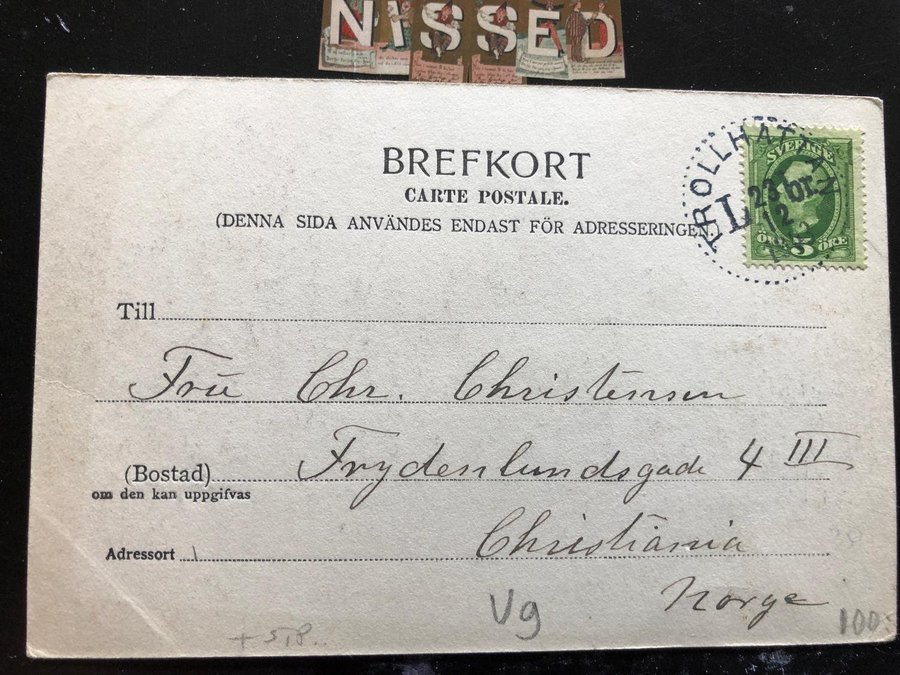 NISSED
BREFKORT
CARTE POSTALE.
(DENNA SIDA ANVÄNDES ENDAST FÖR ADRESSERINGEN.
TROLLHÄTTAN
L
23 br.
12
SVERIGE
ÖRE 5 ÖRE
Till
Fru Chr. Christensen
(Bostad) Frydenlundsgade 4 III
om den kan uppgifvas
Adressort Christiania
Norge
Vg
100: